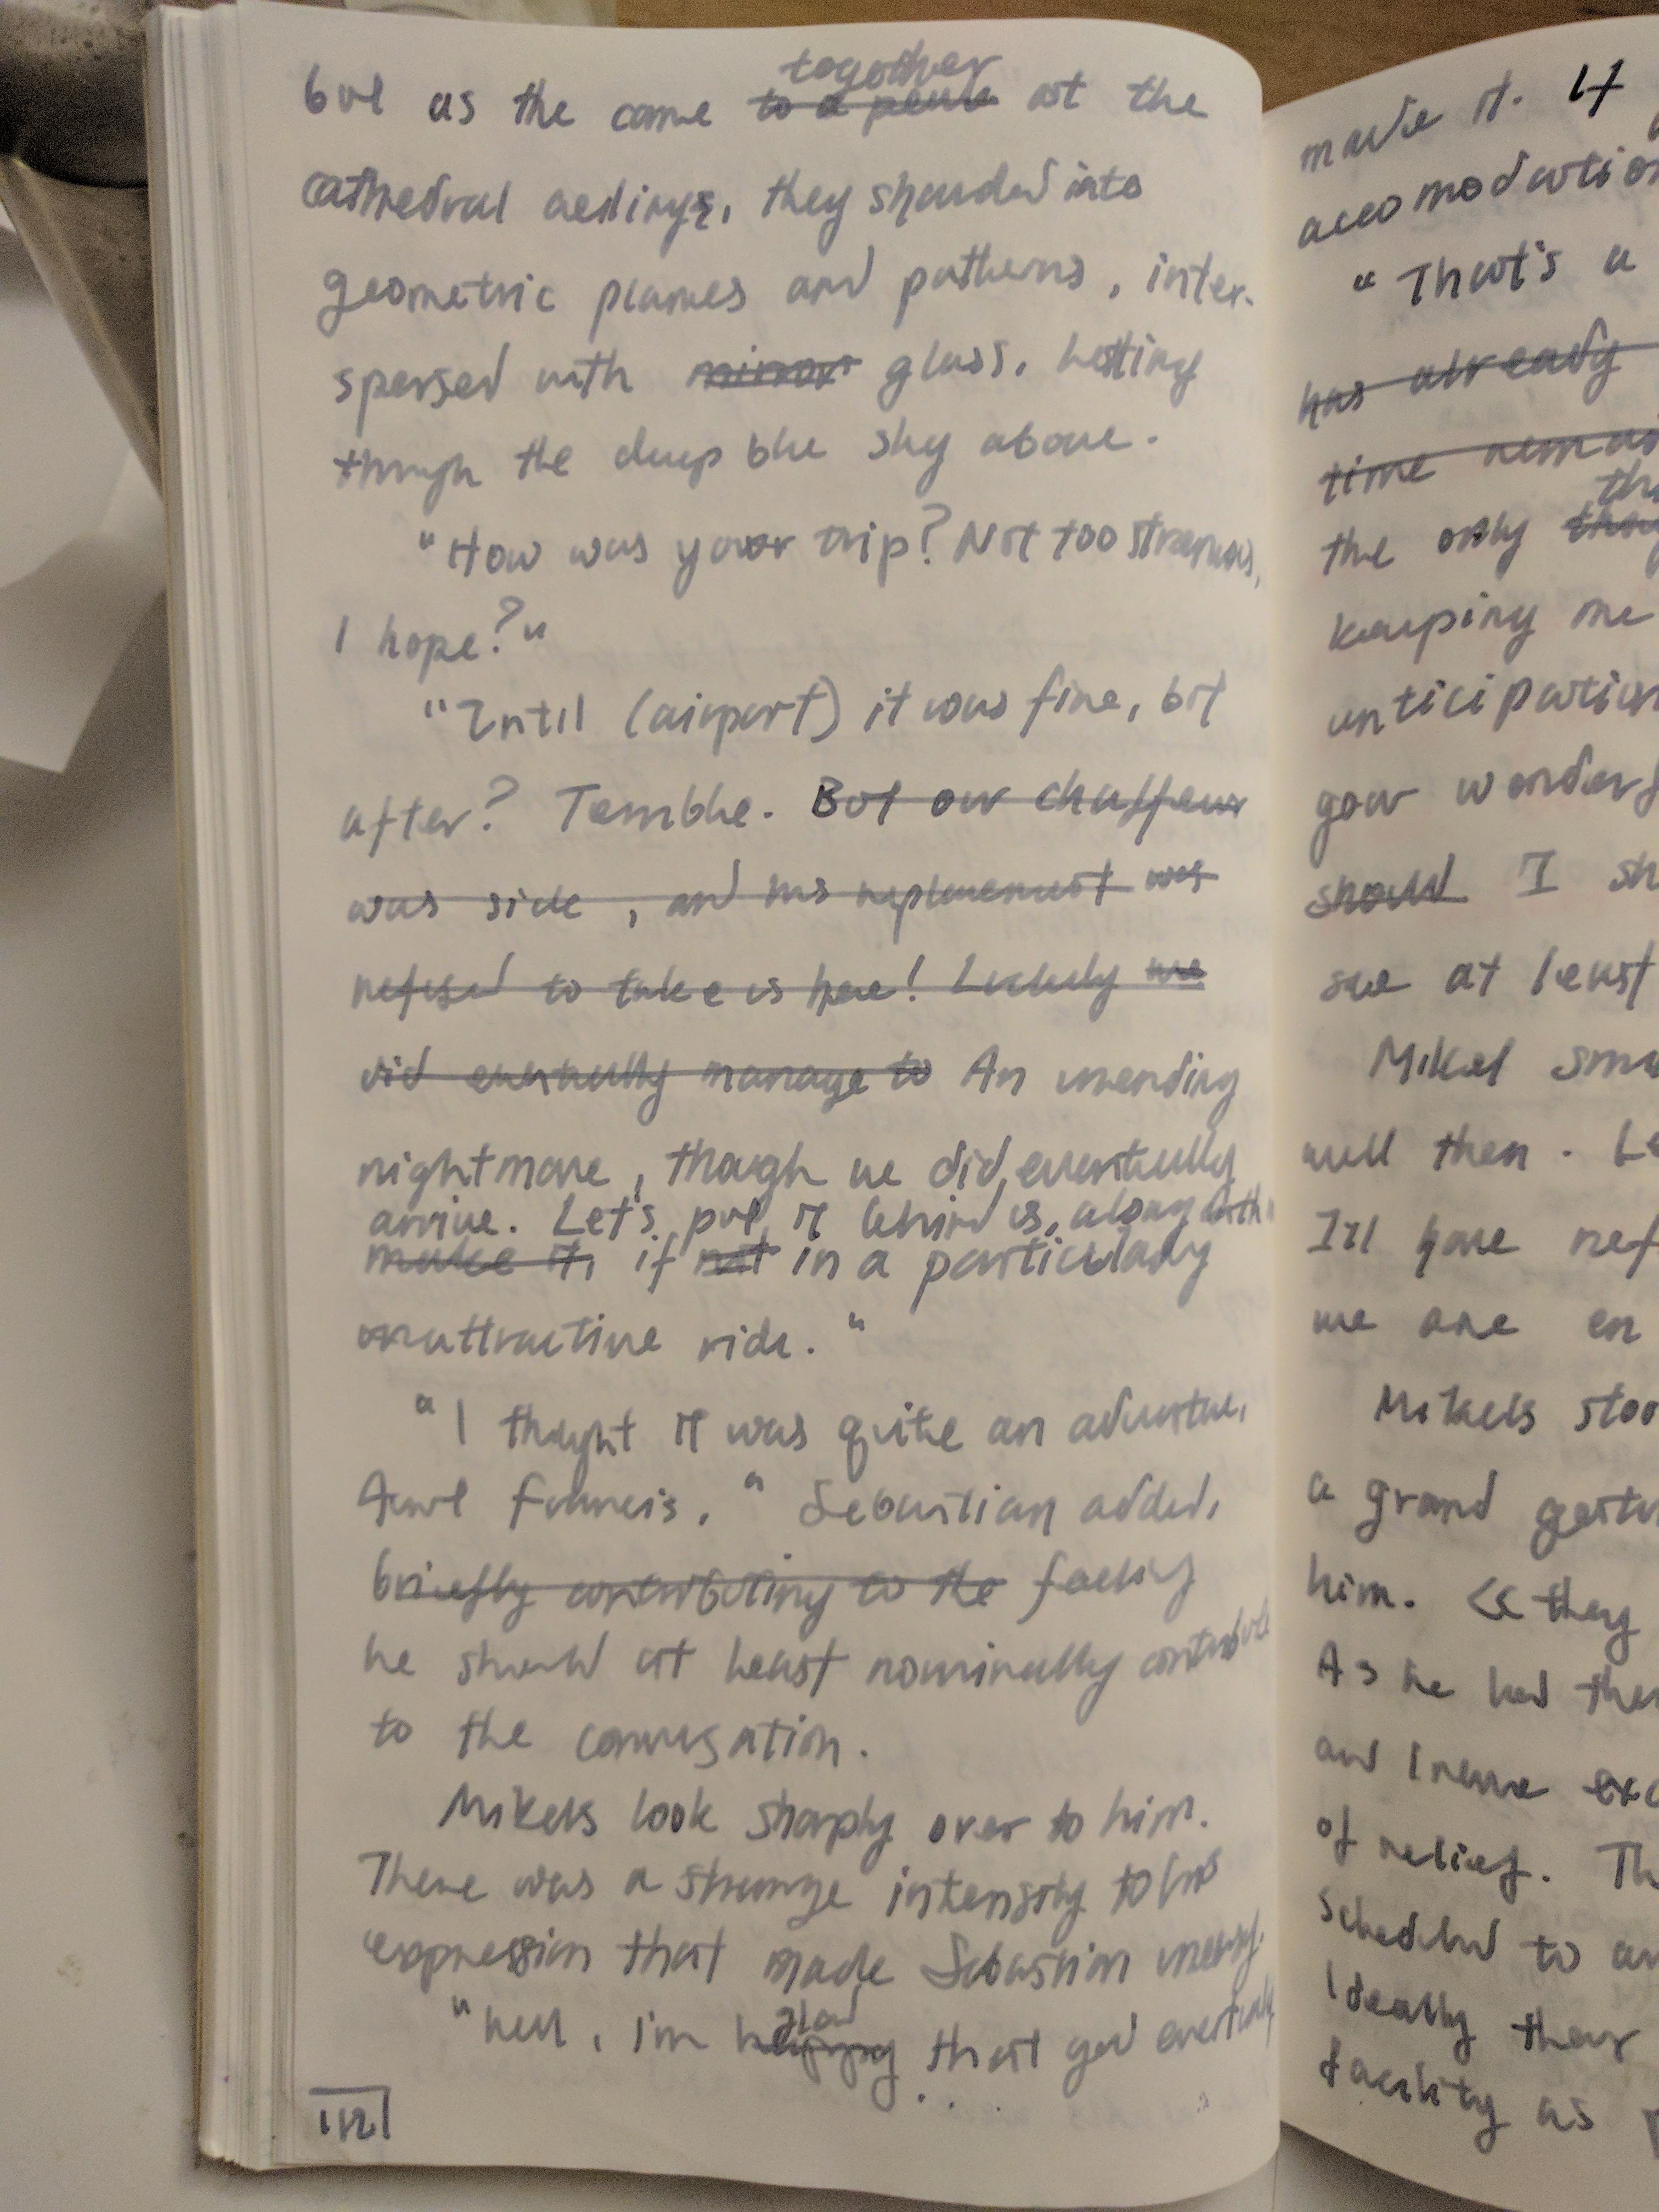 together
but as the came to a peak at the
cathedral ceilings, they sharded into
geometric planes and patterns, inter-
spersed with mirror glass, letting
through the deep blue sky above.
"How was your trip? Not too strenuous,
I hope?"
"Until (airport) it was fine, but
after? Terrible. But our chaffeur
was sick, and his replacement was
refused to take us here! Luckily we
did eventually manage to An unending
nightmare, though we did, eventually
arrive. Let's put it behind us, along with
make it, if not in a particularly
unattractive ride."
"I thought it was quite an adventure,
Aunt Francis." Sebastian added,
briefly contributing to the feeling
he should at least nominally contribute
to the conversation.
Mikels look sharply over to him.
There was a strange intensity to his
expression that made Sebastian uneasy.
glad
"Well, I'm happy that you eventually
112
made it. If
accomodation
"That's a
has already
time
the only
keeping me
anticipation
your wonderf
should I sh
see at least
Mikel smi
well then. Le
I'll have ref
we are en
Mikels stoo
a grand gestu
him. << they
As he led the
and
of relief. Th
scheduled to
Ideally their
facility as